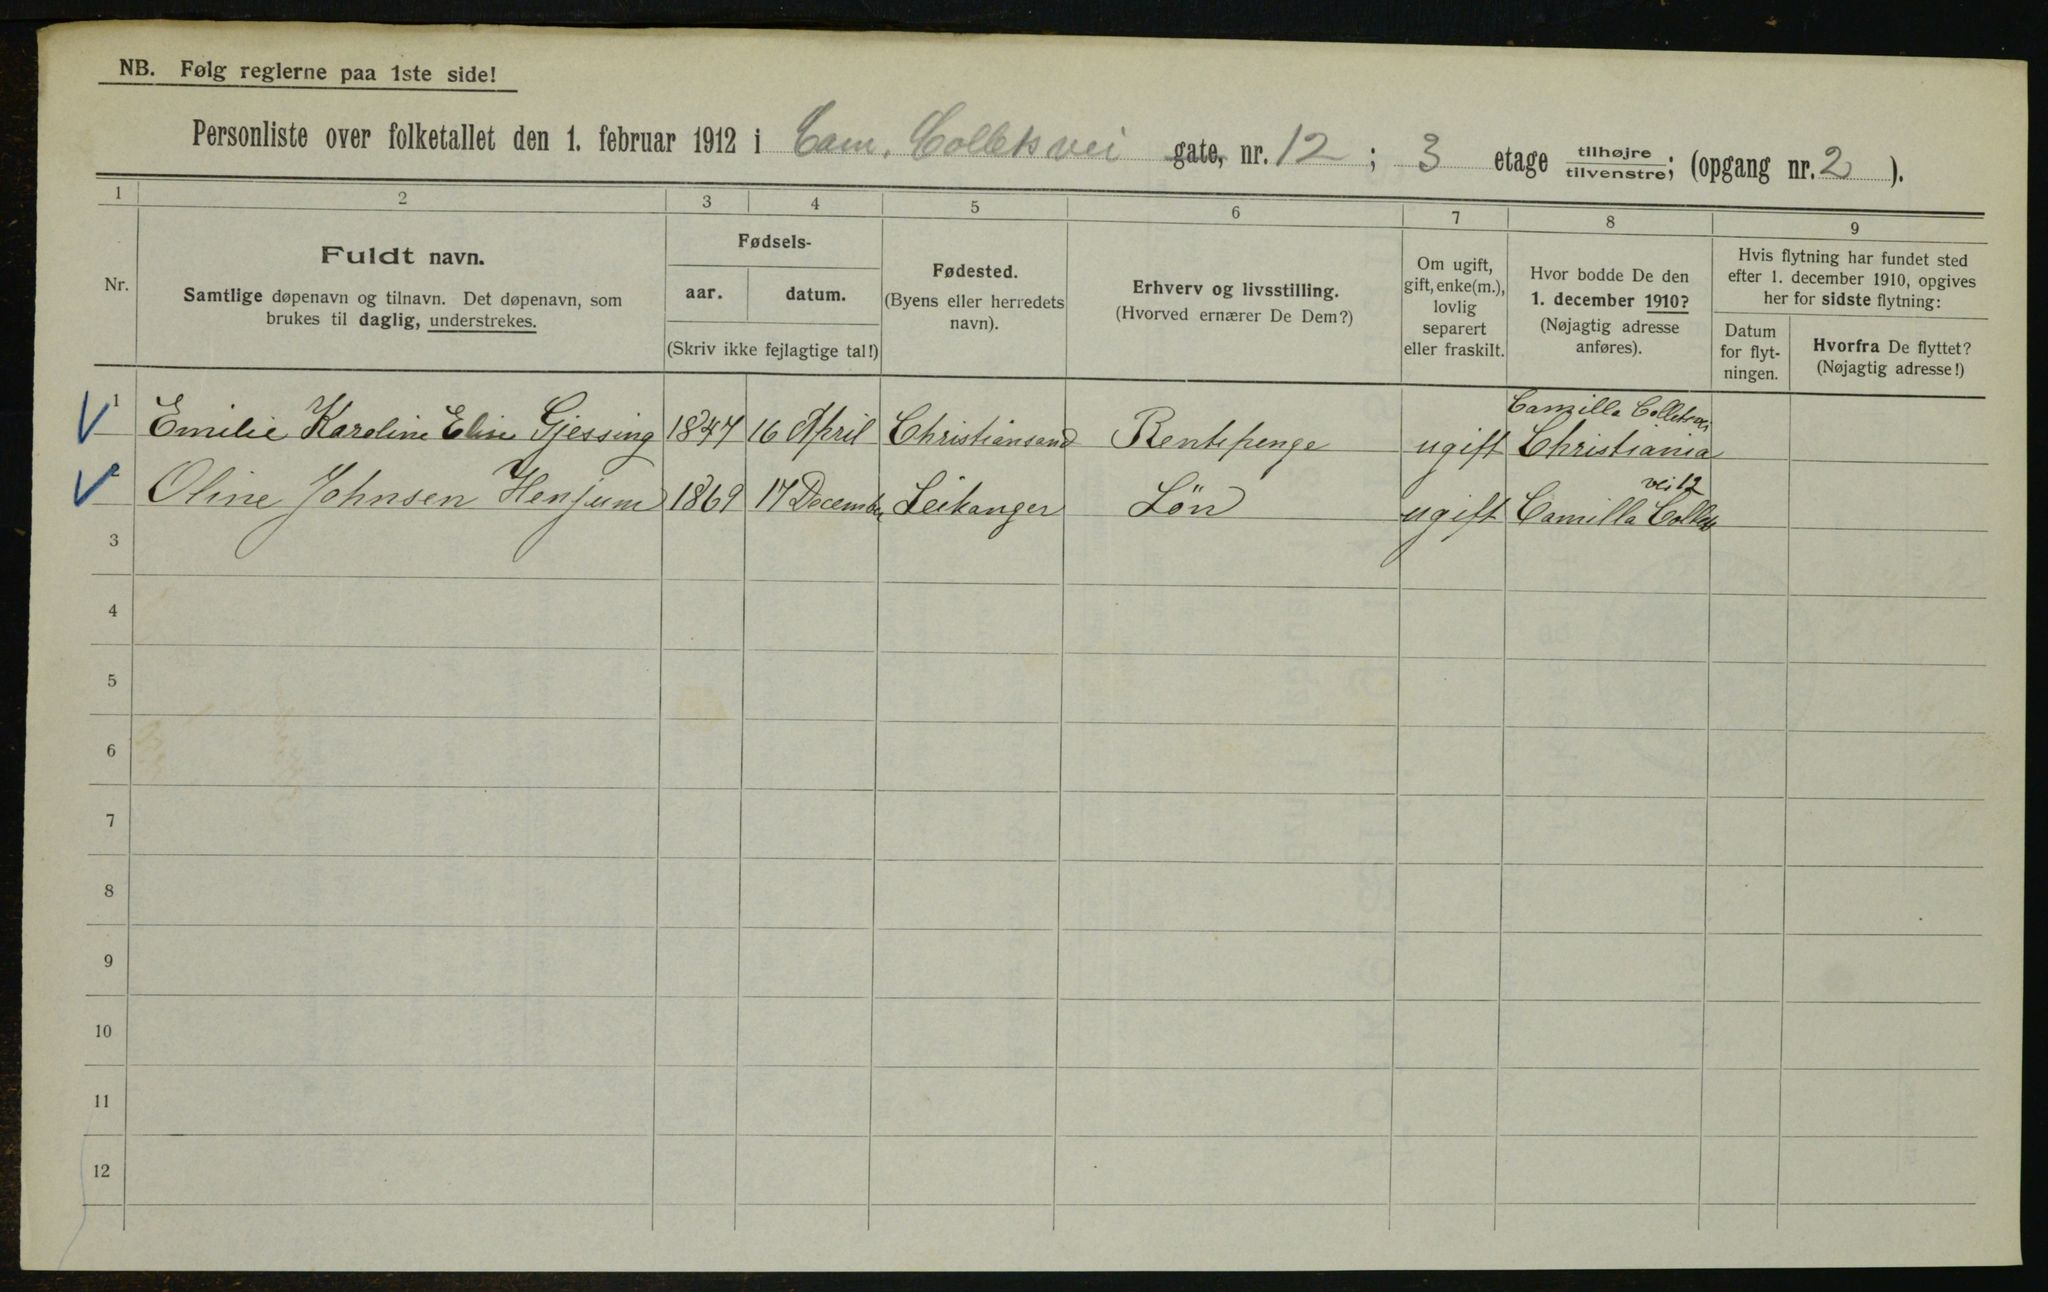 NB. Følg reglerne paa 1ste side!
Personliste over folketallet den 1. februar 1912 i Cam. Colletsvei gate, nr. 12 ; 3 etage tilhøjre tilvenstre; (opgang nr. 2 ).
1 2 3 4 5 6 7 8 9
Nr.
Fuldt navn.
Samtlige døpenavn og tilnavn. Det døpenavn, som
brukes til daglig, understrekes.
Fødsels-
aar. datum.
(Skriv ikke fejlagtige tal!)
Fødested.
(Byens eller herredets
navn).
Erhverv og livsstilling.
(Hvorved ernærer De Dem?)
Om ugift,
gift, enke(m.),
lovlig
separert
eller fraskilt.
Hvor bodde De den
1. december 1910?
(Nøjagtig adresse
anføres).
Hvis flytning har fundet sted
efter 1. december 1910, opgives
her for sidste flytning:
Datum
for flyt-
ningen.
Hvorfra De flyttet?
(Nøjagtig adresse!)
Camilla Colletsvei
1 Emilie Karoline Elise Gjessing 1847 16 April Christiansand Rentepenge ugift Christiania
vei 12
2 Oline Johnsen Henjum 1869 17 December Leikanger Lön ugift Camilla Collets
3
4
5
6
7
8
9
10
11
12